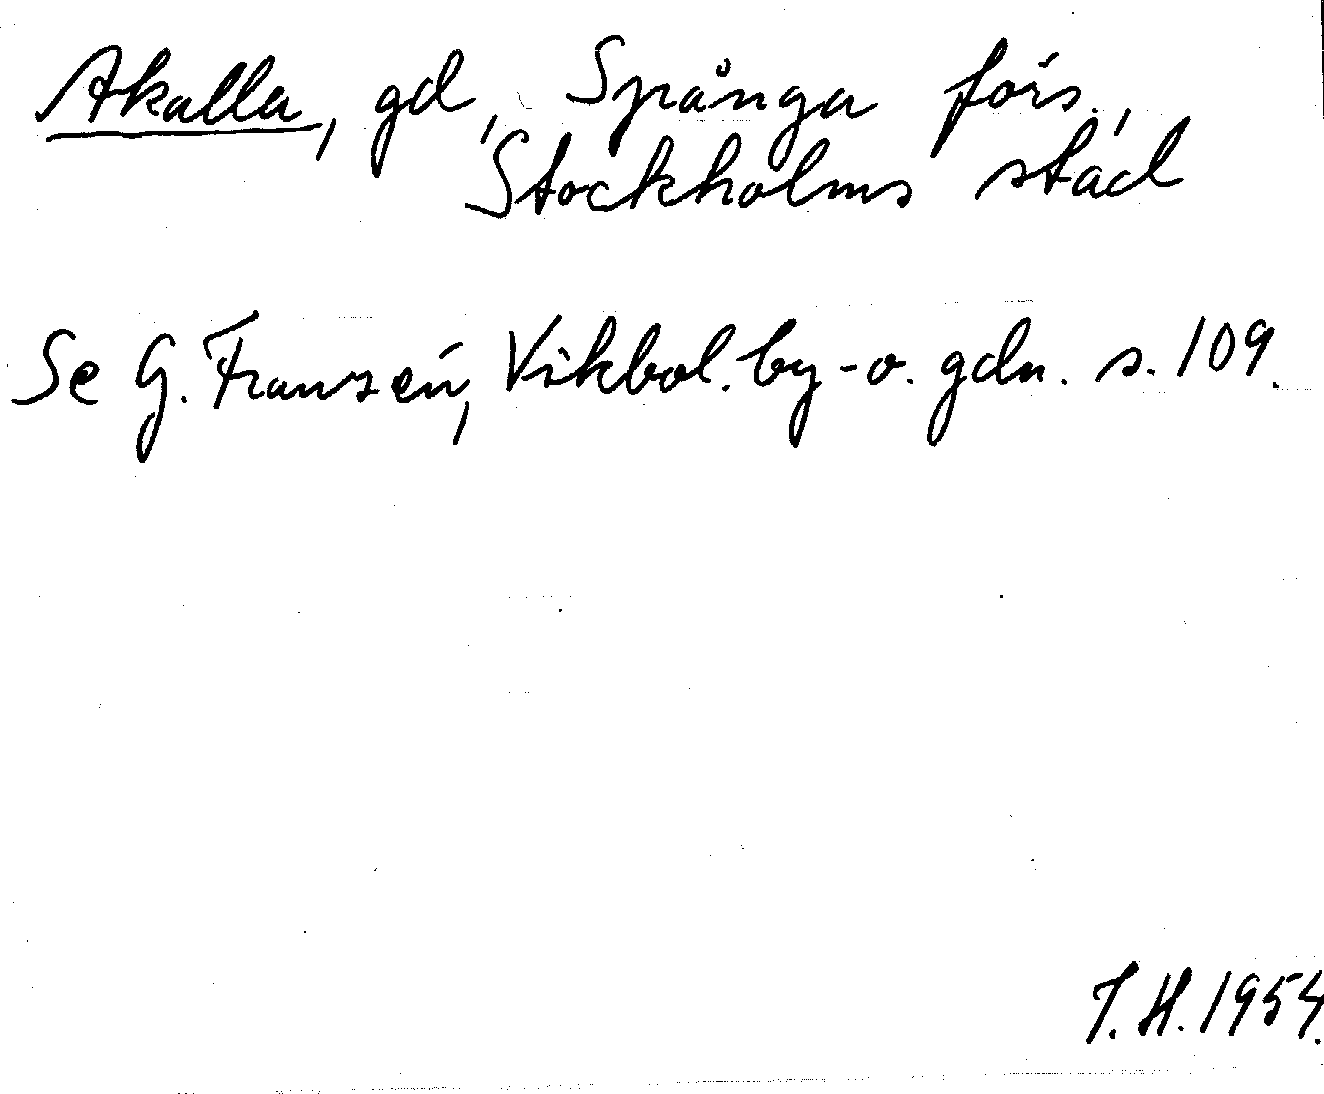 Akalla, gd, Spånga förs.,
Stockholms stad
Se G. Franzén, Vikbol. by- o. gdn. s. 109.
J. H. 1954.